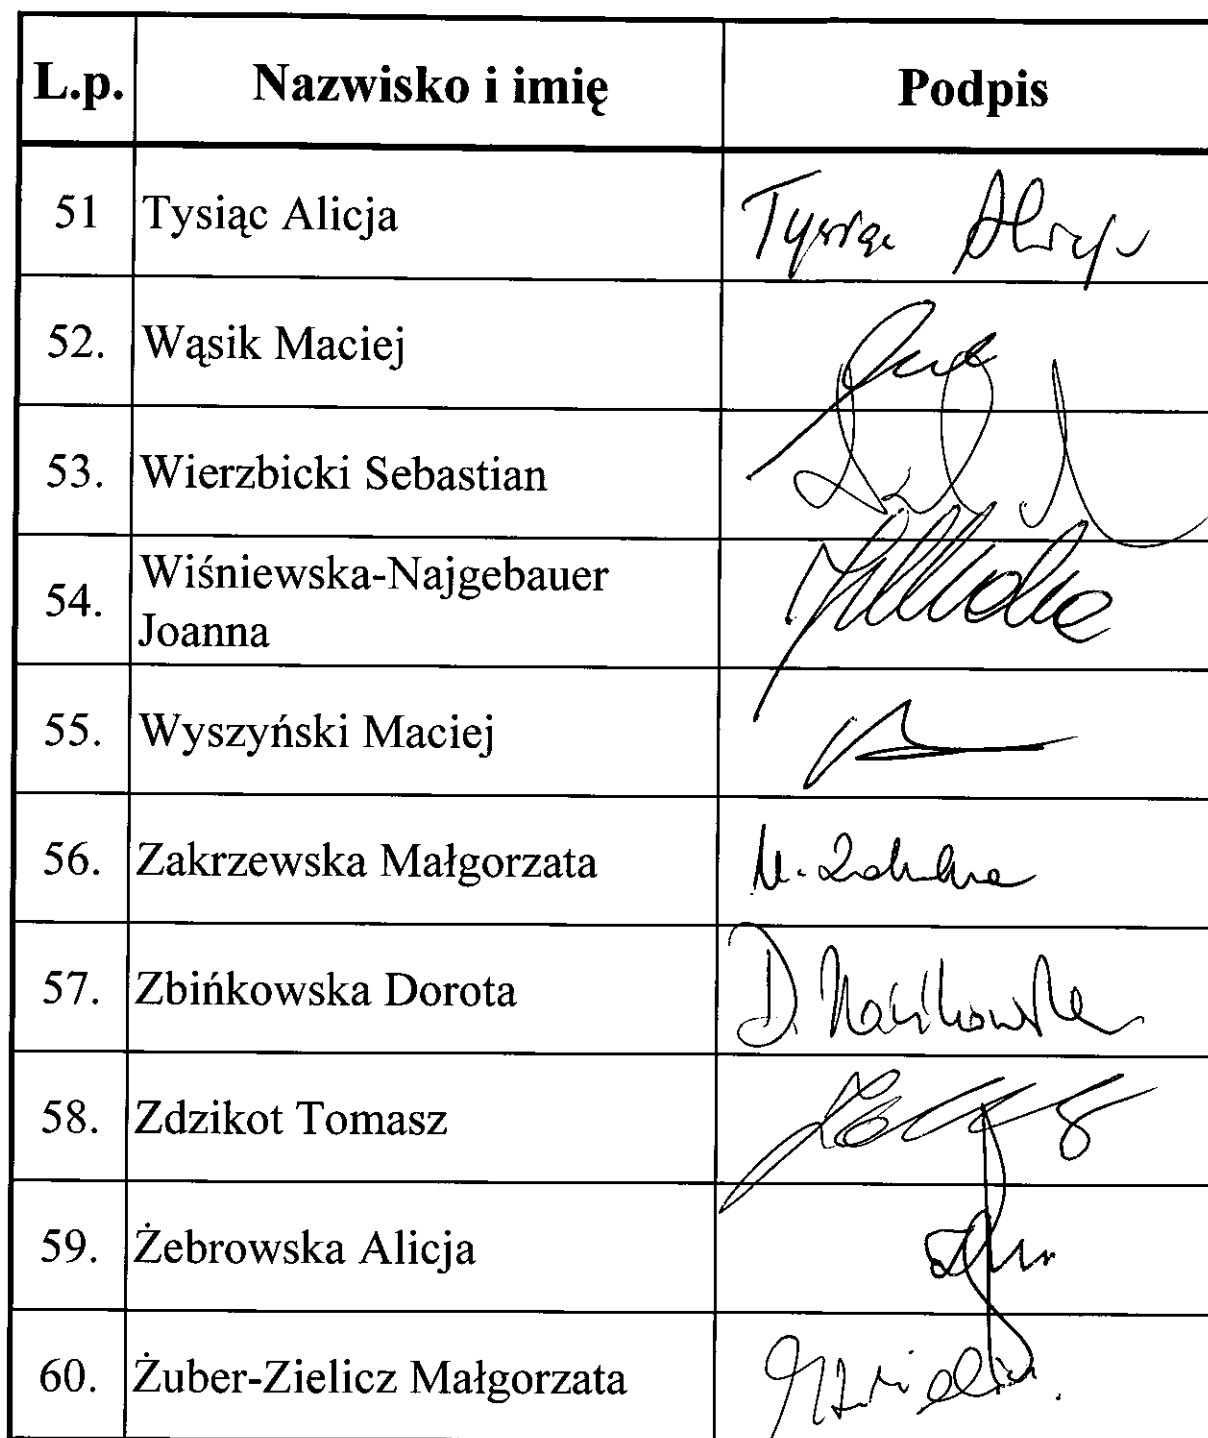 L.p. Nazwisko i imię Podpis
51 Tysiąc Alicja Tysiąc Alicja
52. Wąsik Maciej
53. Wierzbicki Sebastian
54. Wiśniewska-Najgebauer
Joanna
55. Wyszyński Maciej
56. Zakrzewska Małgorzata
57. Zbińkowska Dorota
58. Zdzikot Tomasz
59. Żebrowska Alicja
60. Żuber-Zielicz Małgorzata